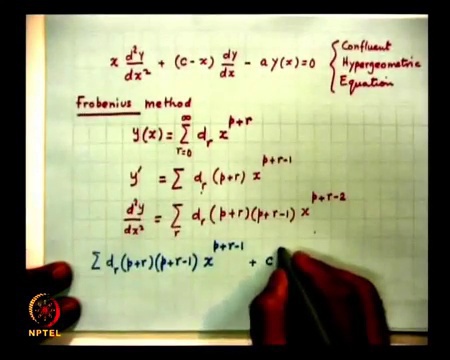 x d²y/dx² + (c-x) dy/dx - a y(x) = 0 { Confluent Hypergeometric Equation
Frobenius method
y(x) = ∑_{r=0}^{∞} d_r x^{p+r}
y' = ∑ d_r (p+r) x^{p+r-1}
d²y/dx² = ∑_r d_r (p+r)(p+r-1) x^{p+r-2}
∑ d_r (p+r)(p+r-1) x^{p+r-1} + c
NPTEL